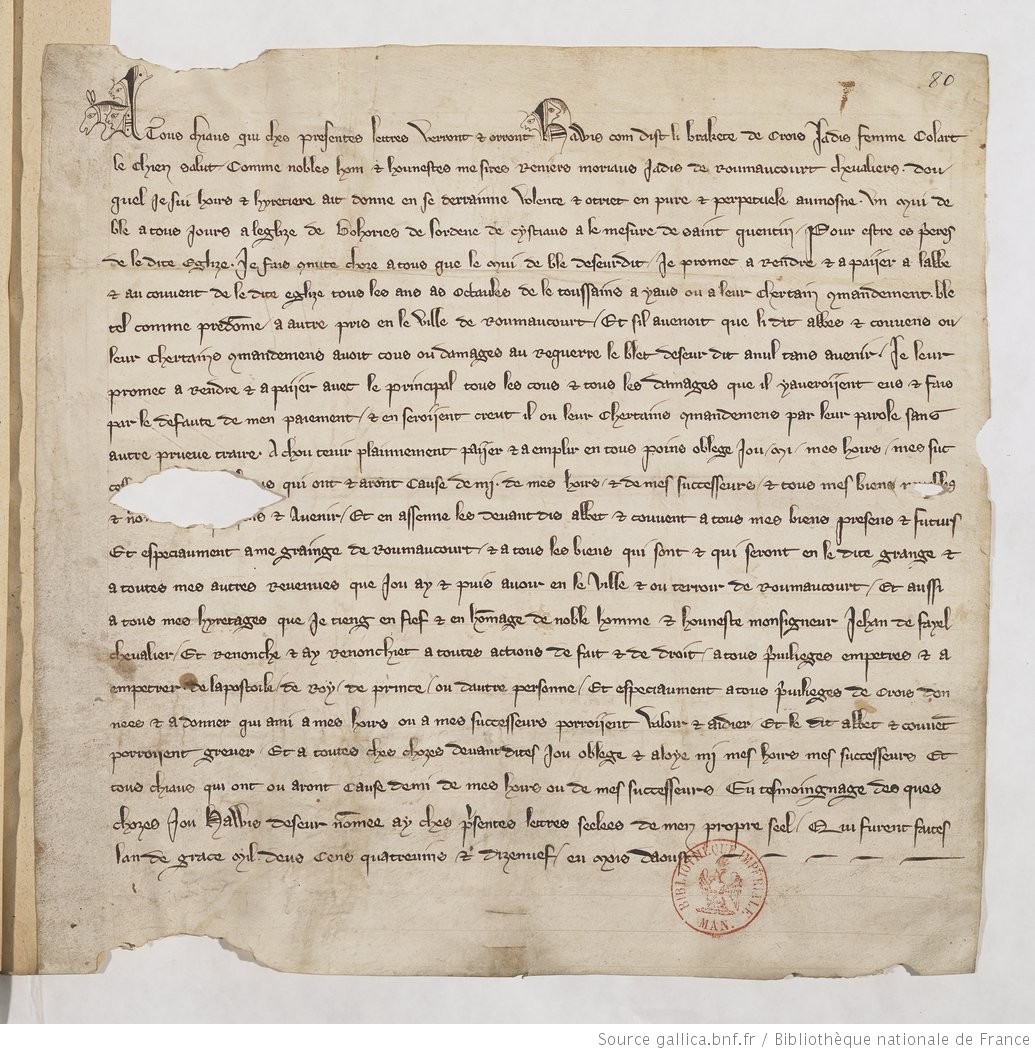 80
A Tous chiaus qui ches presentes lettres verront & orront Hawis com dist li brakete de Crois Jadis femme Colart
le chien salut Comme nobles hom & hounestes mesires Reniers moriaus Jadis de Roumaucourt chevaliers . dou
quel Je sui hoirs & hyretiere ait donne en se derrainne volente & otriet en pure & perpetuele aumosne . un mui de
ble a tous jours a leglize de Bohories de lordene de cystiaus a le mesure de saint quentin / Pour estre es peres
de le dite Eglize . Je fais choze a tous que le mui de ble deseurdit / Je promec a Rendre & a paiier a labbe
& au couvent de le dite eglize tous les ans as octaules de le toussains a yaus ou a leur chertain mandement . ble
tel comme predome / a autre pris en le ville de Roumaucourt / Et sil avenoit que li dit abbes & couvens ou
leur chertains mandemens avoit cous ou damages au Requerre le blet deseur dit a nul tans avenir / Je leur
promec a Rendre & a paiier avec le principal tous les cous & tous les damages que il y averoiient eus & fais
par le defaute de men paiement / & en seroiient creut il ou leur chertains mandemens par leur parole sans
autre prueve traire . A chou tenir plainnement paiier & a emplir en tous poins oblege Jou / mi / mes hoirs / mes suc
qui ont & aront cause de mi . de mes hoirs / & de mes successeurs / & tous mes biens
& & avenir / Et en assenne les devant dis abbet & couvent a tous mes biens presens & futurs
Et especiaument a me grainge de Roumaucourt / & a tous les biens qui sont & qui seront en le dite grange &
a toutes mes autres Revenues que Jou ay & puis avoir en le ville & ou terroir de Roumaucourt / Et aussi
a tous mes hyretages que Je tieng en fief & en homage de noble homme & houneste monsigneur Jehan de fayel
chevalier / Et Renonche & ay Renonchiet a toutes actions de fait & de droit / a tous privilieges empetres & a
empetrer . de lapostoile / de Roy / de prince / ou dautre personne / Et especiaument a tous privilieges de Crois don
nees & a donner qui a mi a mes hoirs ou a mes successeurs porroiient valoir & aidier / Et le dit abbet & couvet
porroiient grever / Et a toutes ches chozes devant dites Jou oblege & aloye mi mes hoirs mes successeurs Et
tous chiaus qui ont ou aront cause de mi de mes hoirs ou de mes successeurs En tesmoingnage des ques
chozes Jou Hawis deseur nomee ay ches presentes lettres seelees de men propre seel / Qui furent faites
lan de grace mil . deus cens quatrevins & dizenuef / en mois daoust
BIBLIOTHÈQUE IMPÉRIALE
MAN.
Source gallica.bnf.fr / Bibliothèque nationale de France